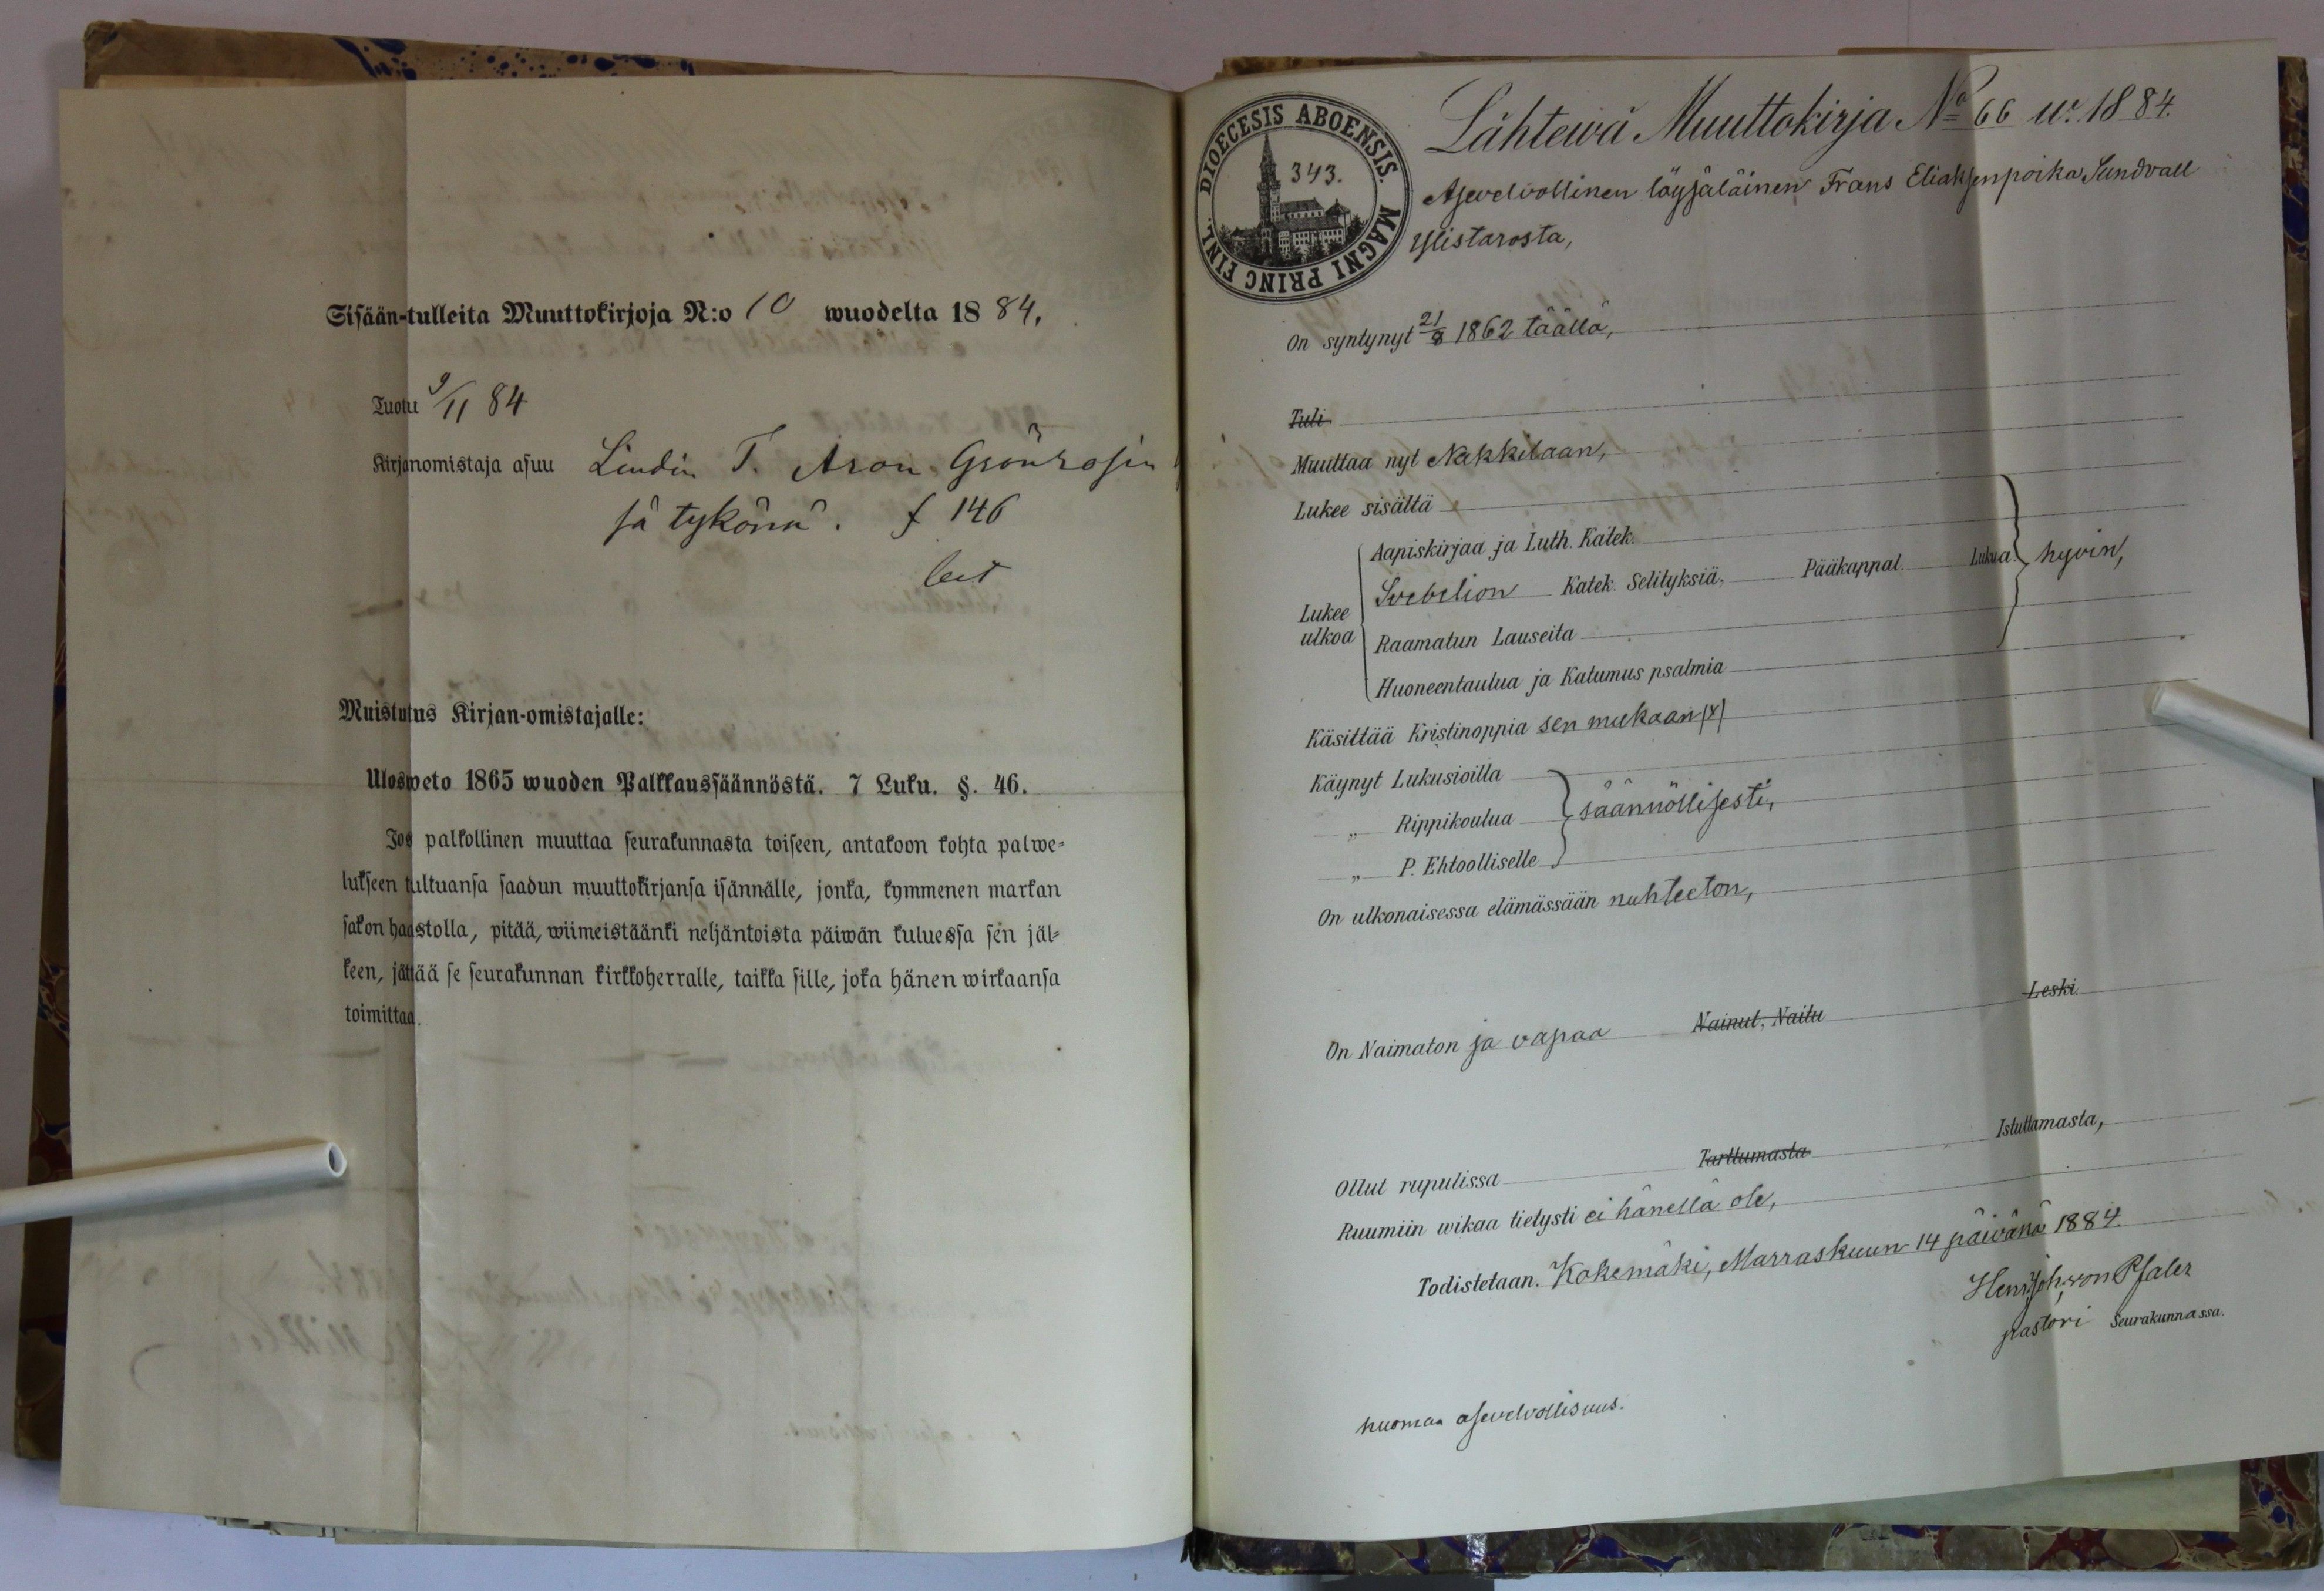 Sisään-tulleita Muuttokirjoja N:o 10 wuodelta 1884.
Tuotu 9/11 84
Kirjanomistaja asuu Lindin T. Aron Grönrosin
sä tykönä. f 146
Muistutus Kirjan-omistajalle:
Ulosweto 1865 wuoden Palkkaussäännöstä. 7 Luku. §. 46.
Jos palkollinen muuttaa seurakunnasta toiseen, antakoon kohta palwe-
lukseen tultuansa saadun muuttokirjansa isännälle, jonka, kymmenen markan
sakon haastolla, pitää, wiimeistäänki neljäntoista päiwän kuluessa sen jäl-
keen, jättää se seurakunnan kirkkoherralle, taikka sille, joka hänen wirkaansa
toimittaa.
DIOECESIS ABOENSIS. MAGNI PRINC FINL.
343.
Lähtewä Muuttokirja No 66 w. 1884.
Asevelvollinen löysäläinen Frans Eliaksenpoika Sundvall
Ylistarosta,
On syntynyt 21/8 1862 täällä,
Tuli
Muuttaa nyt Nakkilaan,
Lukee sisältä
Aapiskirjaa ja Luth. Katek.
Lukee ulkoa
Svebelion Katek. Selityksiä, Pääkappal. Lukua. hyvin,
Raamatun Lauseita
Huoneentaulua ja Katumus psalmia
Käsittää Kristinoppia sen mukaan (x)
Käynyt Lukusioilla
„ Rippikoulua säännöllisesti,
„ P. Ehtoolliselle
On ulkonaisessa elämässään nuhteeton,
On Naimaton ja vapaa Nainut, Naitu Leski.
Ollut rupulissa Tarttumasta Istuttamasta,
Ruumiin wikaa tietysti ei hänellä ole,
Todistetaan. Kokemäki, Marraskuun 14 päivänä 1884.
Henr. Joh. von Pfaler
pastori Seurakunnassa.
huomaa asevelvollisuus.